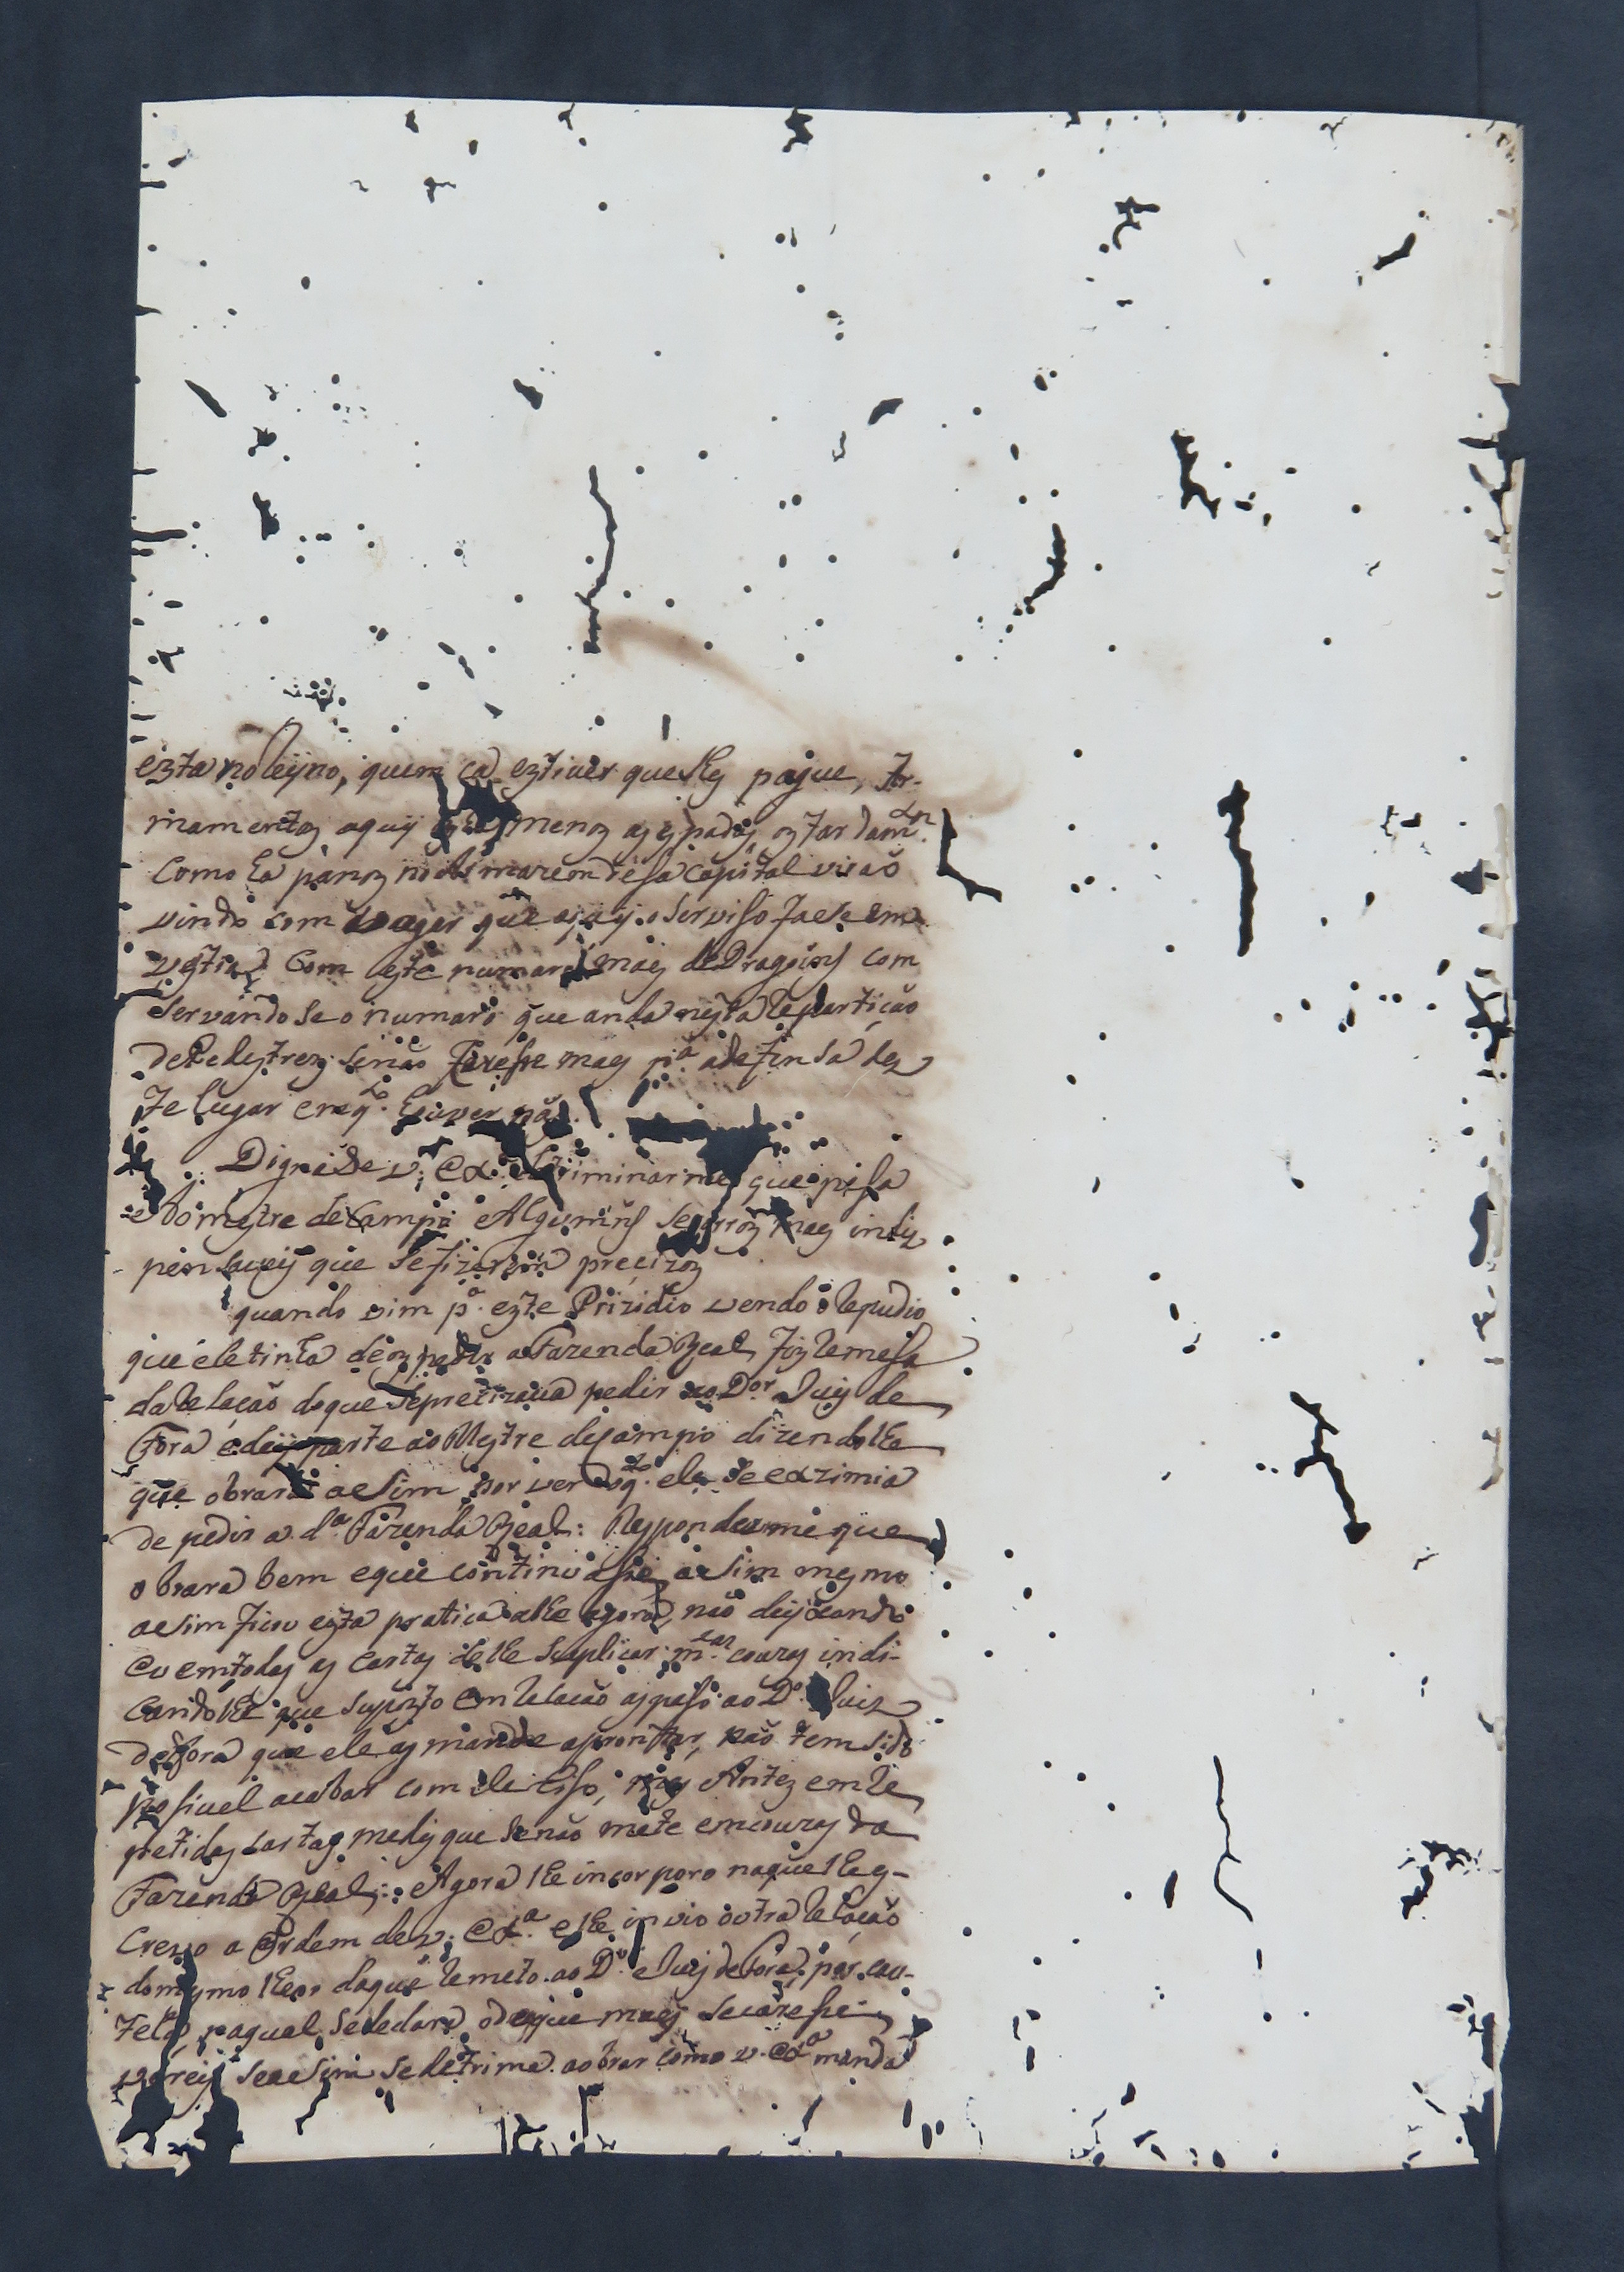 ezta no Reyno, quem ca eztiver que lhes pague, Far-
mamentos aquy menos as espadas os fardam.tos
Como la panos no Armazem desa Capital virão
vindo com vagar que asy o serviso fase em
vestia Com este numaro mais de Dragoins com
servando se o numaro que anda nesta Repartição
de Pedestres senão Carese mais p.a a defensa des
te lugar em q.to houver
Digne Se v. Ex.a detriminar me que pesa
Ao mestre de Campo Alguns mais indis
pensaveis que se fizerem precizos
quando vim p.a ezte Prizidio vendo o Repudio
que ele tinha de os pedir a Fazenda Real, fiz Remesa
da Relação do que se precizava pedir ao D.or Juis de
Fora e dei parte ao Mestre de Campo dizendo lhe
que obrara asim por ver q.to ele se eximia
de pedir a d.a Fazenda Real: Respondeu me que
obrara bem e que continuase asim mesmo
asim ficou ezta pratica athe agora, não deixando
eu em todas as Cartas de lhe Suplicar m.tas couzas indi-
cando lhe que supozto em Relação as peso ao D.or Juis
de Fora que ele as mande aprontar, não tem sido
posivel acabar com ele hiso, mas Antes em Re
petidas Cartas me dis que se não mete em couzas da
Fazenda Real: Agora lhe incorporo na que lhe es-
crevo a Ordem de v. Ex.a e lhe invio outra Relação
do mesmo theor da que Remeto ao D.or Juis de Fora, por cau-
tela, na qual se vera o de que mais se carese
verei se asim se detrima a obrar como v. Ex.a manda